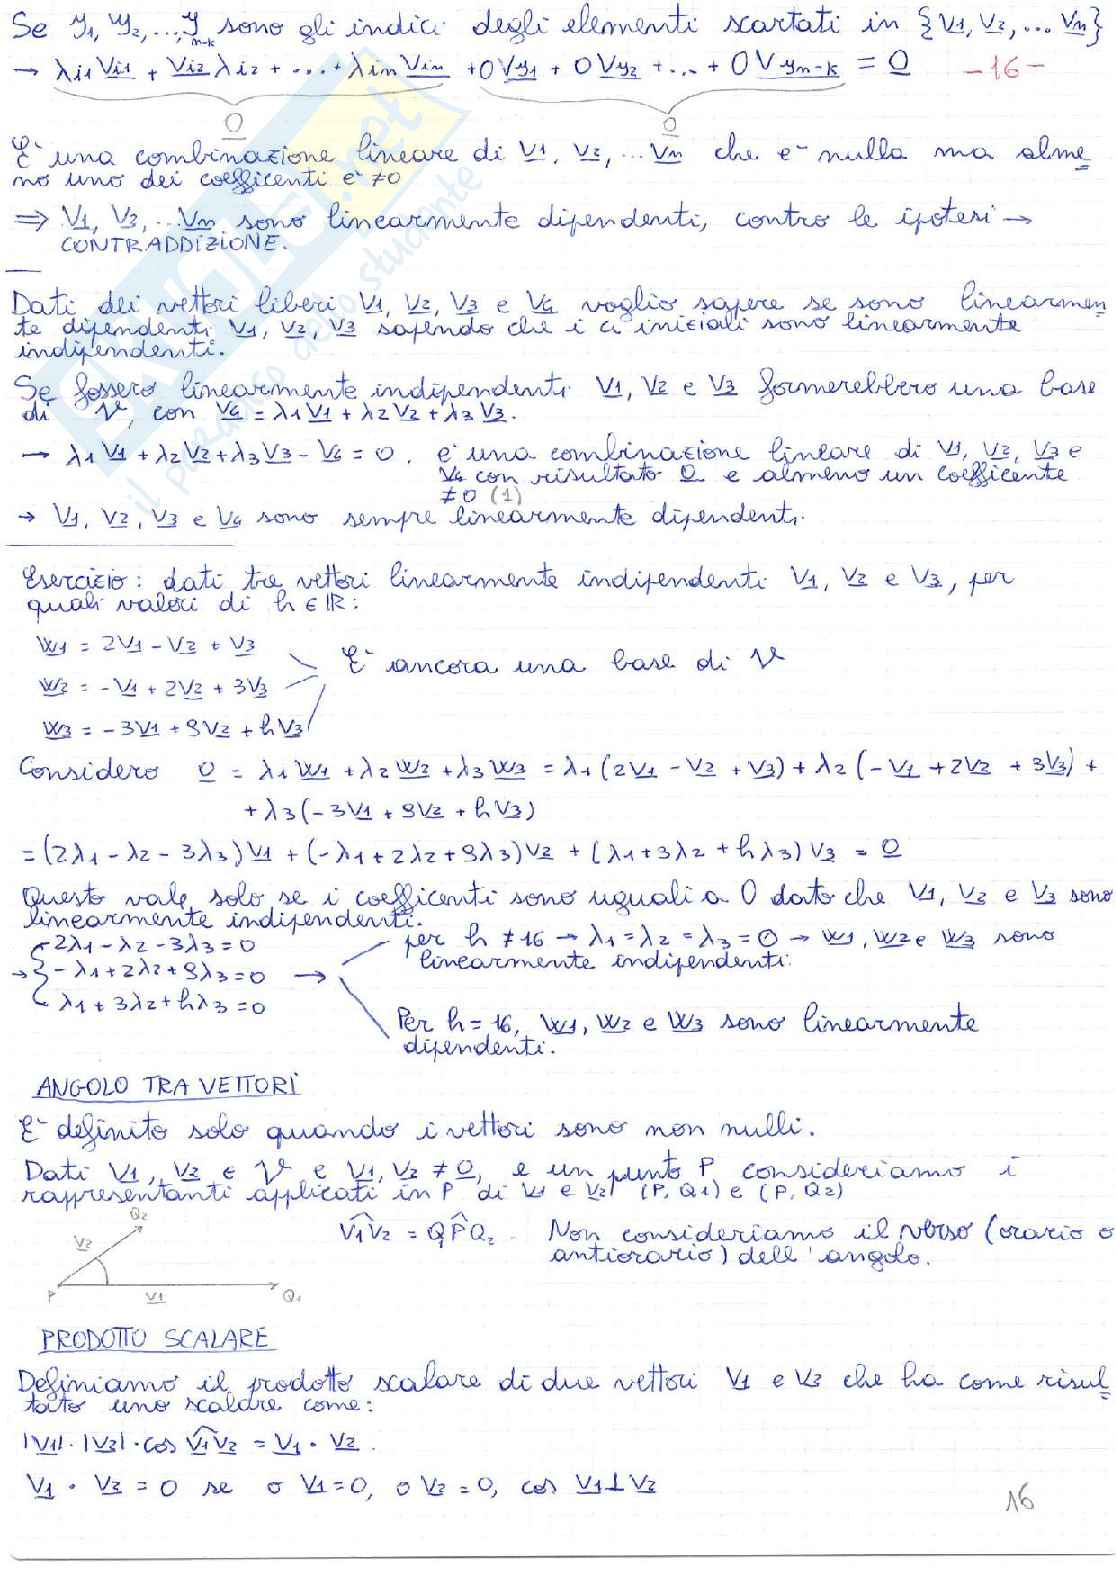 Se y1, y2, ..., yn-k sono gli indici degli elementi scartati in {v1, v2, ... vn}
→ λi1 vi1 + vi2 λi2 + ... + λin vin + 0vy1 + 0vy2 + ... + 0vyn-k = 0 -16-
0 0
E' una combinazione lineare di v1, v2, ... vn che e' nulla ma alme
no uno dei coefficenti e' ≠0
⇒ v1, v2, ... vn sono linearmente dipendenti, contro le ipotesi →
CONTRADDIZIONE.
Dati dei vettori liberi v1, v2, v3 e v4 voglio sapere se sono linearmen
te dipendenti v1, v2, v3 sapendo che i ci iniziali sono linearmente
indipendenti.
Se fossero linearmente indipendenti v1, v2 e v3 formerebbero una base
di V, con v4 = λ1v1 + λ2v2 + λ3v3.
→ λ1v1 + λ2v2 + λ3v3 - v4 = 0. e' una combinazione lineare di v1, v2, v3 e
v4 con risultato 0 e almeno un coefficente
≠0 (1)
→ v1, v2, v3 e v4 sono sempre linearmente dipendenti.
Esercizio: dati tre vettori linearmente indipendenti v1, v2 e v3, per
quali valori di h ∈ ℝ:
w1 = 2v1 - v2 + v3
E' ancora una base di V
w2 = -v1 + 2v2 + 3v3
w3 = -3v1 + 9v2 + hv3
Considero 0 = λ1w1 + λ2w2 + λ3w3 = λ1(2v1 - v2 + v3) + λ2(-v1 + 2v2 + 3v3) +
+ λ3(-3v1 + 9v2 + hv3)
= (2λ1 - λ2 - 3λ3)v1 + (-λ1 + 2λ2 + 9λ3)v2 + (λ1 + 3λ2 + hλ3)v3 = 0
Questo vale solo se i coefficenti sono uguali a 0 dato che v1, v2 e v3 sono
linearmente indipendenti.
2λ1 - λ2 - 3λ3 = 0
per h ≠ 16 → λ1 = λ2 = λ3 = 0 → w1, w2 e w3 sono
linearmente indipendenti.
→ { -λ1 + 2λ2 + 9λ3 = 0 →
λ1 + 3λ2 + hλ3 = 0
Per h = 16, w1, w2 e w3 sono linearmente
dipendenti.
ANGOLO TRA VETTORI
E' definito solo quando i vettori sono non nulli.
Dati v1, v2 ∈ V e v1, v2 ≠ 0, e un punto P consideriamo i
rappresentanti applicati in P di v1 e v2 (P, Q1) e (P, Q2)
Q2
v2
v1v2 = Q1PQ2. Non consideriamo il verso (orario o
antiorario) dell'angolo.
P v1 Q1
PRODOTTO SCALARE
Definiamo il prodotto scalare di due vettori v1 e v2 che ha come risul
tato uno scalare come:
|v1| · |v2| · cos v1v2 = v1 · v2.
v1 · v2 = 0 se o v1 = 0, o v2 = 0, cos v1 ⊥ v2
16